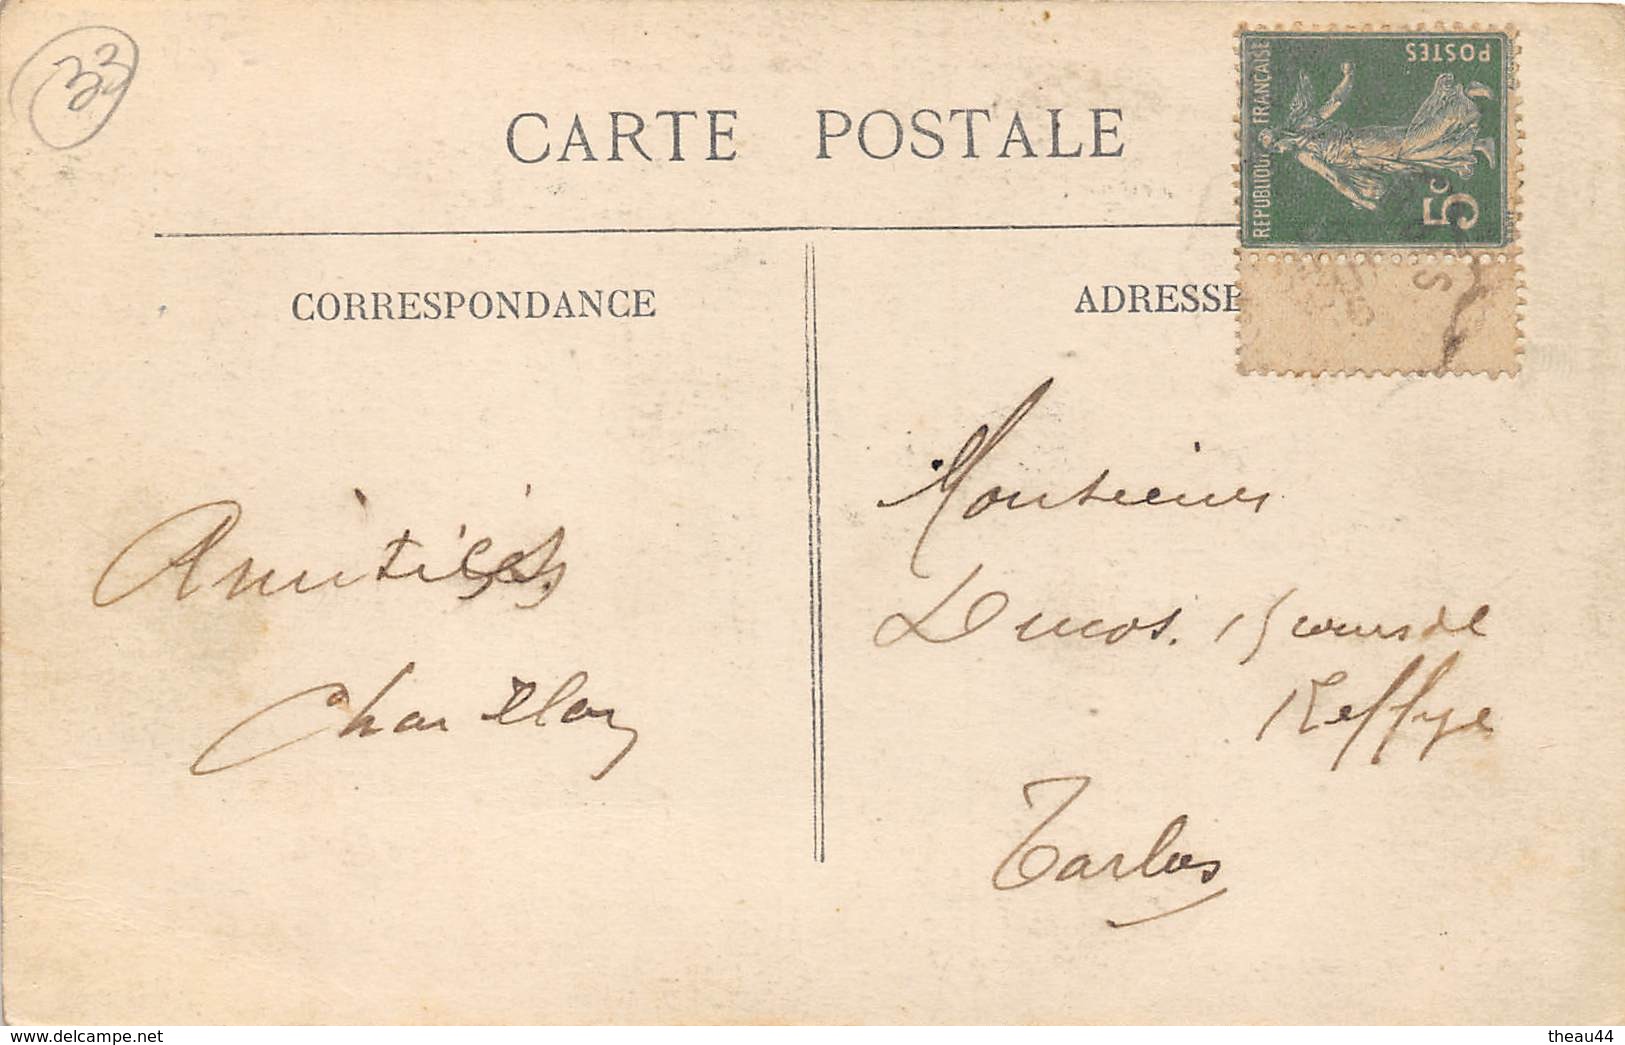 33
CARTE POSTALE
REPUBLIQUE FRANÇAISE
POSTES
5c
CORRESPONDANCE
ADRESSE
Amitiés
Monsieur
Ducos. 15 cours de
Reffye
Tarbes
https://www.delcampe.net
theau44